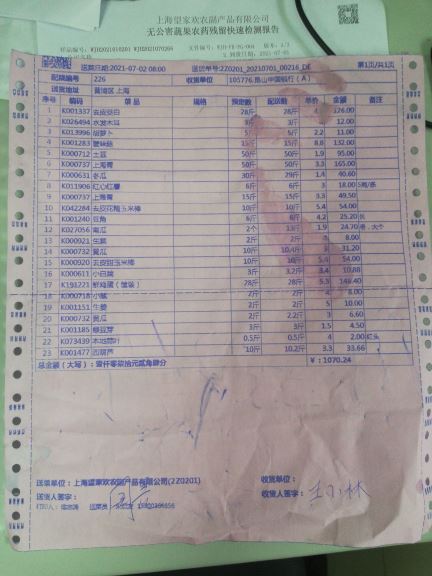 上海望家欢农副产品有限公司
无公害蔬菜农药残留快速检测报告
送货日期:2021-07-02 08:00 送货单号:ZZ0201_20210701_00216_DE 第1页/共1页
配销编号 226 收货单位: 105776.昆山中国银行(A)
送货地址 黄埔区 上海
序号 编码 品名 规格 预定数 配送数 单价 金额 备注
1 K001337 去皮茭白 28斤 28斤 126.00
2 K026494 水发木耳 3斤 3斤 4 12.00
3 K013996 胡萝卜 5斤 5斤 2.2 11.00
4 K001283 蟹味菇 15斤 15斤 8.8 132.00
5 K000712 土豆 50斤 50斤 1.9 95.00
6 K000737 上海青 50斤 50斤 3.3 165.00
7 K000631 冬瓜 30斤 29斤 1.4 40.60
8 K011906 红心红薯 6斤 6斤 3 18.00
9 K000737 上海青 15斤 15斤 3.3 49.50
10 K042284 去皮花糯玉米棒 10斤 10斤 5.4 54.00
11 K001240 豆角 6斤 6斤 4.2 25.20 长
12 K027056 南瓜 2个 13斤 1.9 24.70
13 K000921 生粉 8.00
14 K000732 黄瓜 10斤 10.4斤 3 31.20
15 K000920 去皮甜玉米棒 10斤 10斤 5.4 54.00
16 K000611 小白菜 3斤 3.2斤 3.4 10.88
17 K191221 鲜鸡蛋(散装) 28斤 28斤 5.3 148.40
18 K000718 小葱 2斤 2斤 4 8.00
19 K001151 生姜 2斤 2斤 5 10.00
20 K000732 黄瓜 2斤 2.2斤 3 6.60
21 K001185 绿豆芽 3斤 3斤 1.5 4.50
22 K073439 本地蒜叶 0.5斤 0.5斤 4 2.00 红头
23 K001477 西葫芦 10斤 10.2斤 3.3 33.66
总金额(大写):壹仟零柒拾元贰角肆分 ¥:1070.24
送货单位:上海望家欢农副产品有限公司(ZZ0201) 收货单位:
送货人签字: 收货人签字: